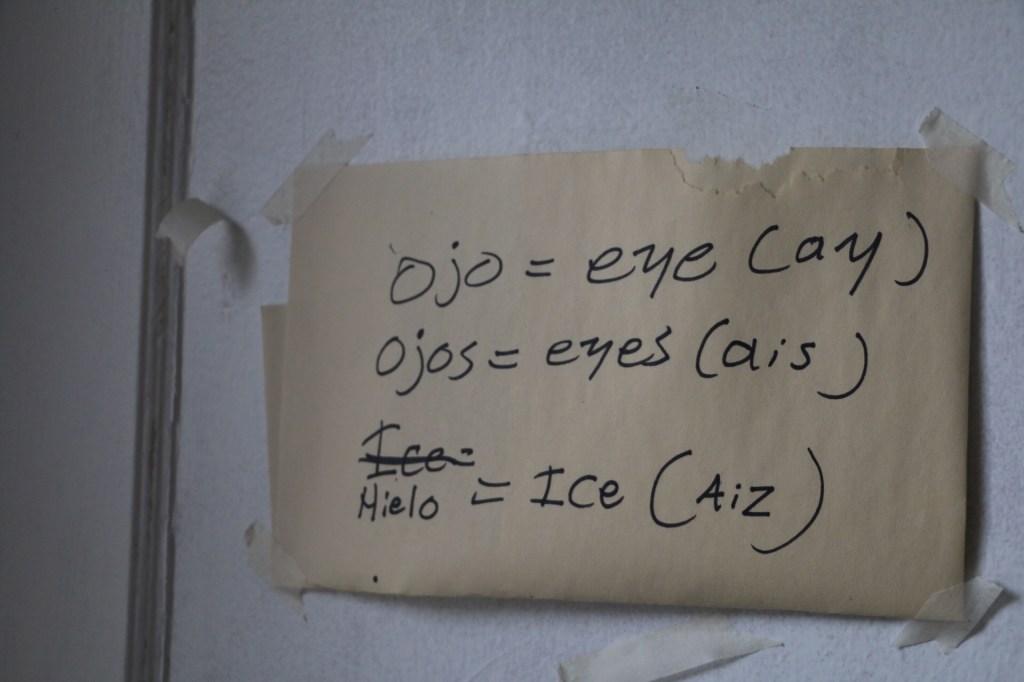 ojo = eye (ay)
ojos = eyes (ais)
Ice
Hielo = Ice (Aiz)